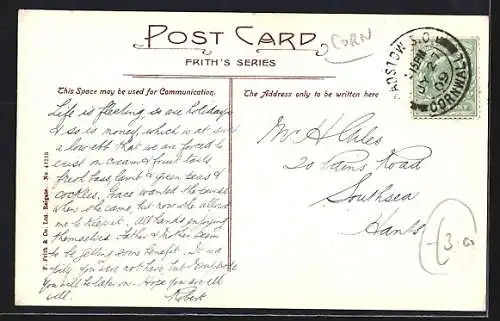 POST CARD
CORN
FRITH'S SERIES
This Space may be used for Communication.
The Address only to be written here
PADSTOW S.O.
CORNWALL
09
Life is fleeting so are holidays
& so is money, which is at such
a low ebb that we are forced to
exist on cream & fruit tarts
fresh bass, lamb & green peas &
cockles. Grace wanted the
when she came but now she
me to keep it. All hands enjoying
themselves Father & Mother seem
to be getting some benefit. It is a
pity you are not here, but doubtless
you will be later on. Hope you are all
well.
Robert
Mr H Giles
20 Road
Southsea
Hants
F. Frith & Co. Ltd. Reigate. No
3.00